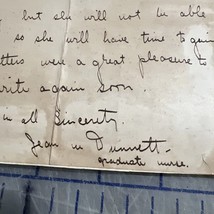 but she will not be able
so she will have time to
were a great pleasure to
write again soon.
in all Sincerity,
Jean M Dunnett -
graduate nurse.